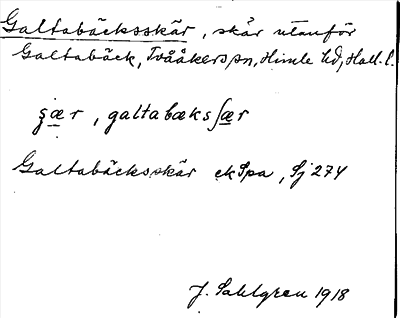 Galtabäcksskär, skär utanför
Galtabäck, Tvååkers sn, Himle hd, Hall. l.
ʂær, galtabæksʃær
Galtabäcksskär ek Spa, Sj 274
J. Sahlgren 1918